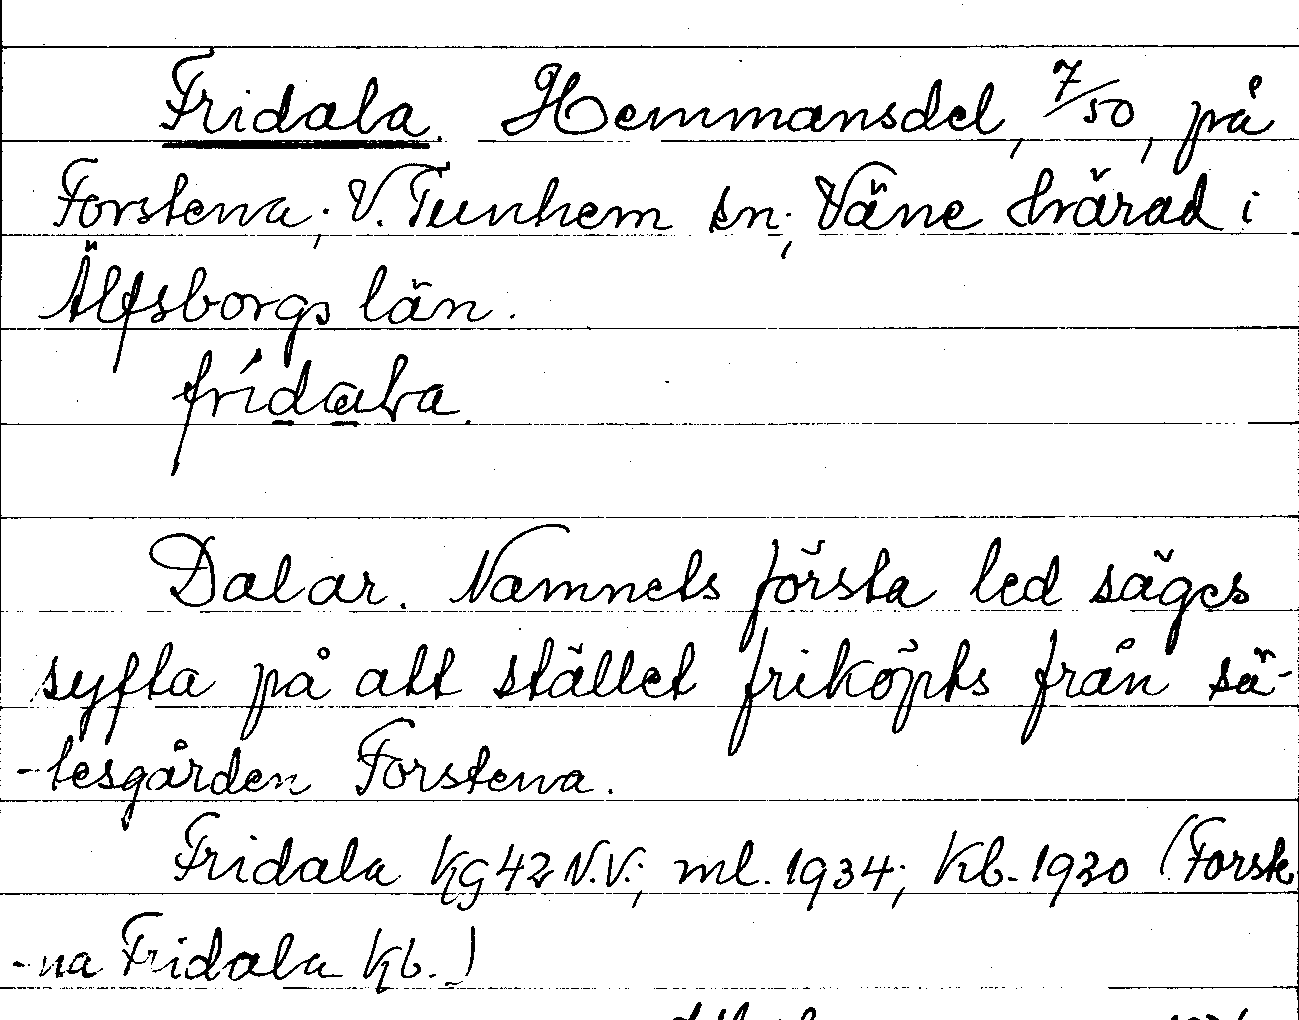 Fridala. Hemmansdel, 7/50, på
Forstena; V. Tunhem sn; Väne härad i
Älfsborgs län.
frídaba.
Dalar. Namnets första led säges
syfta på att stället friköpts från sä-
-tesgården Forstena.
Fridala Kg 42 N.V.; ml. 1934; Kb. 1930 (Forste
-na Fridala Kb.)